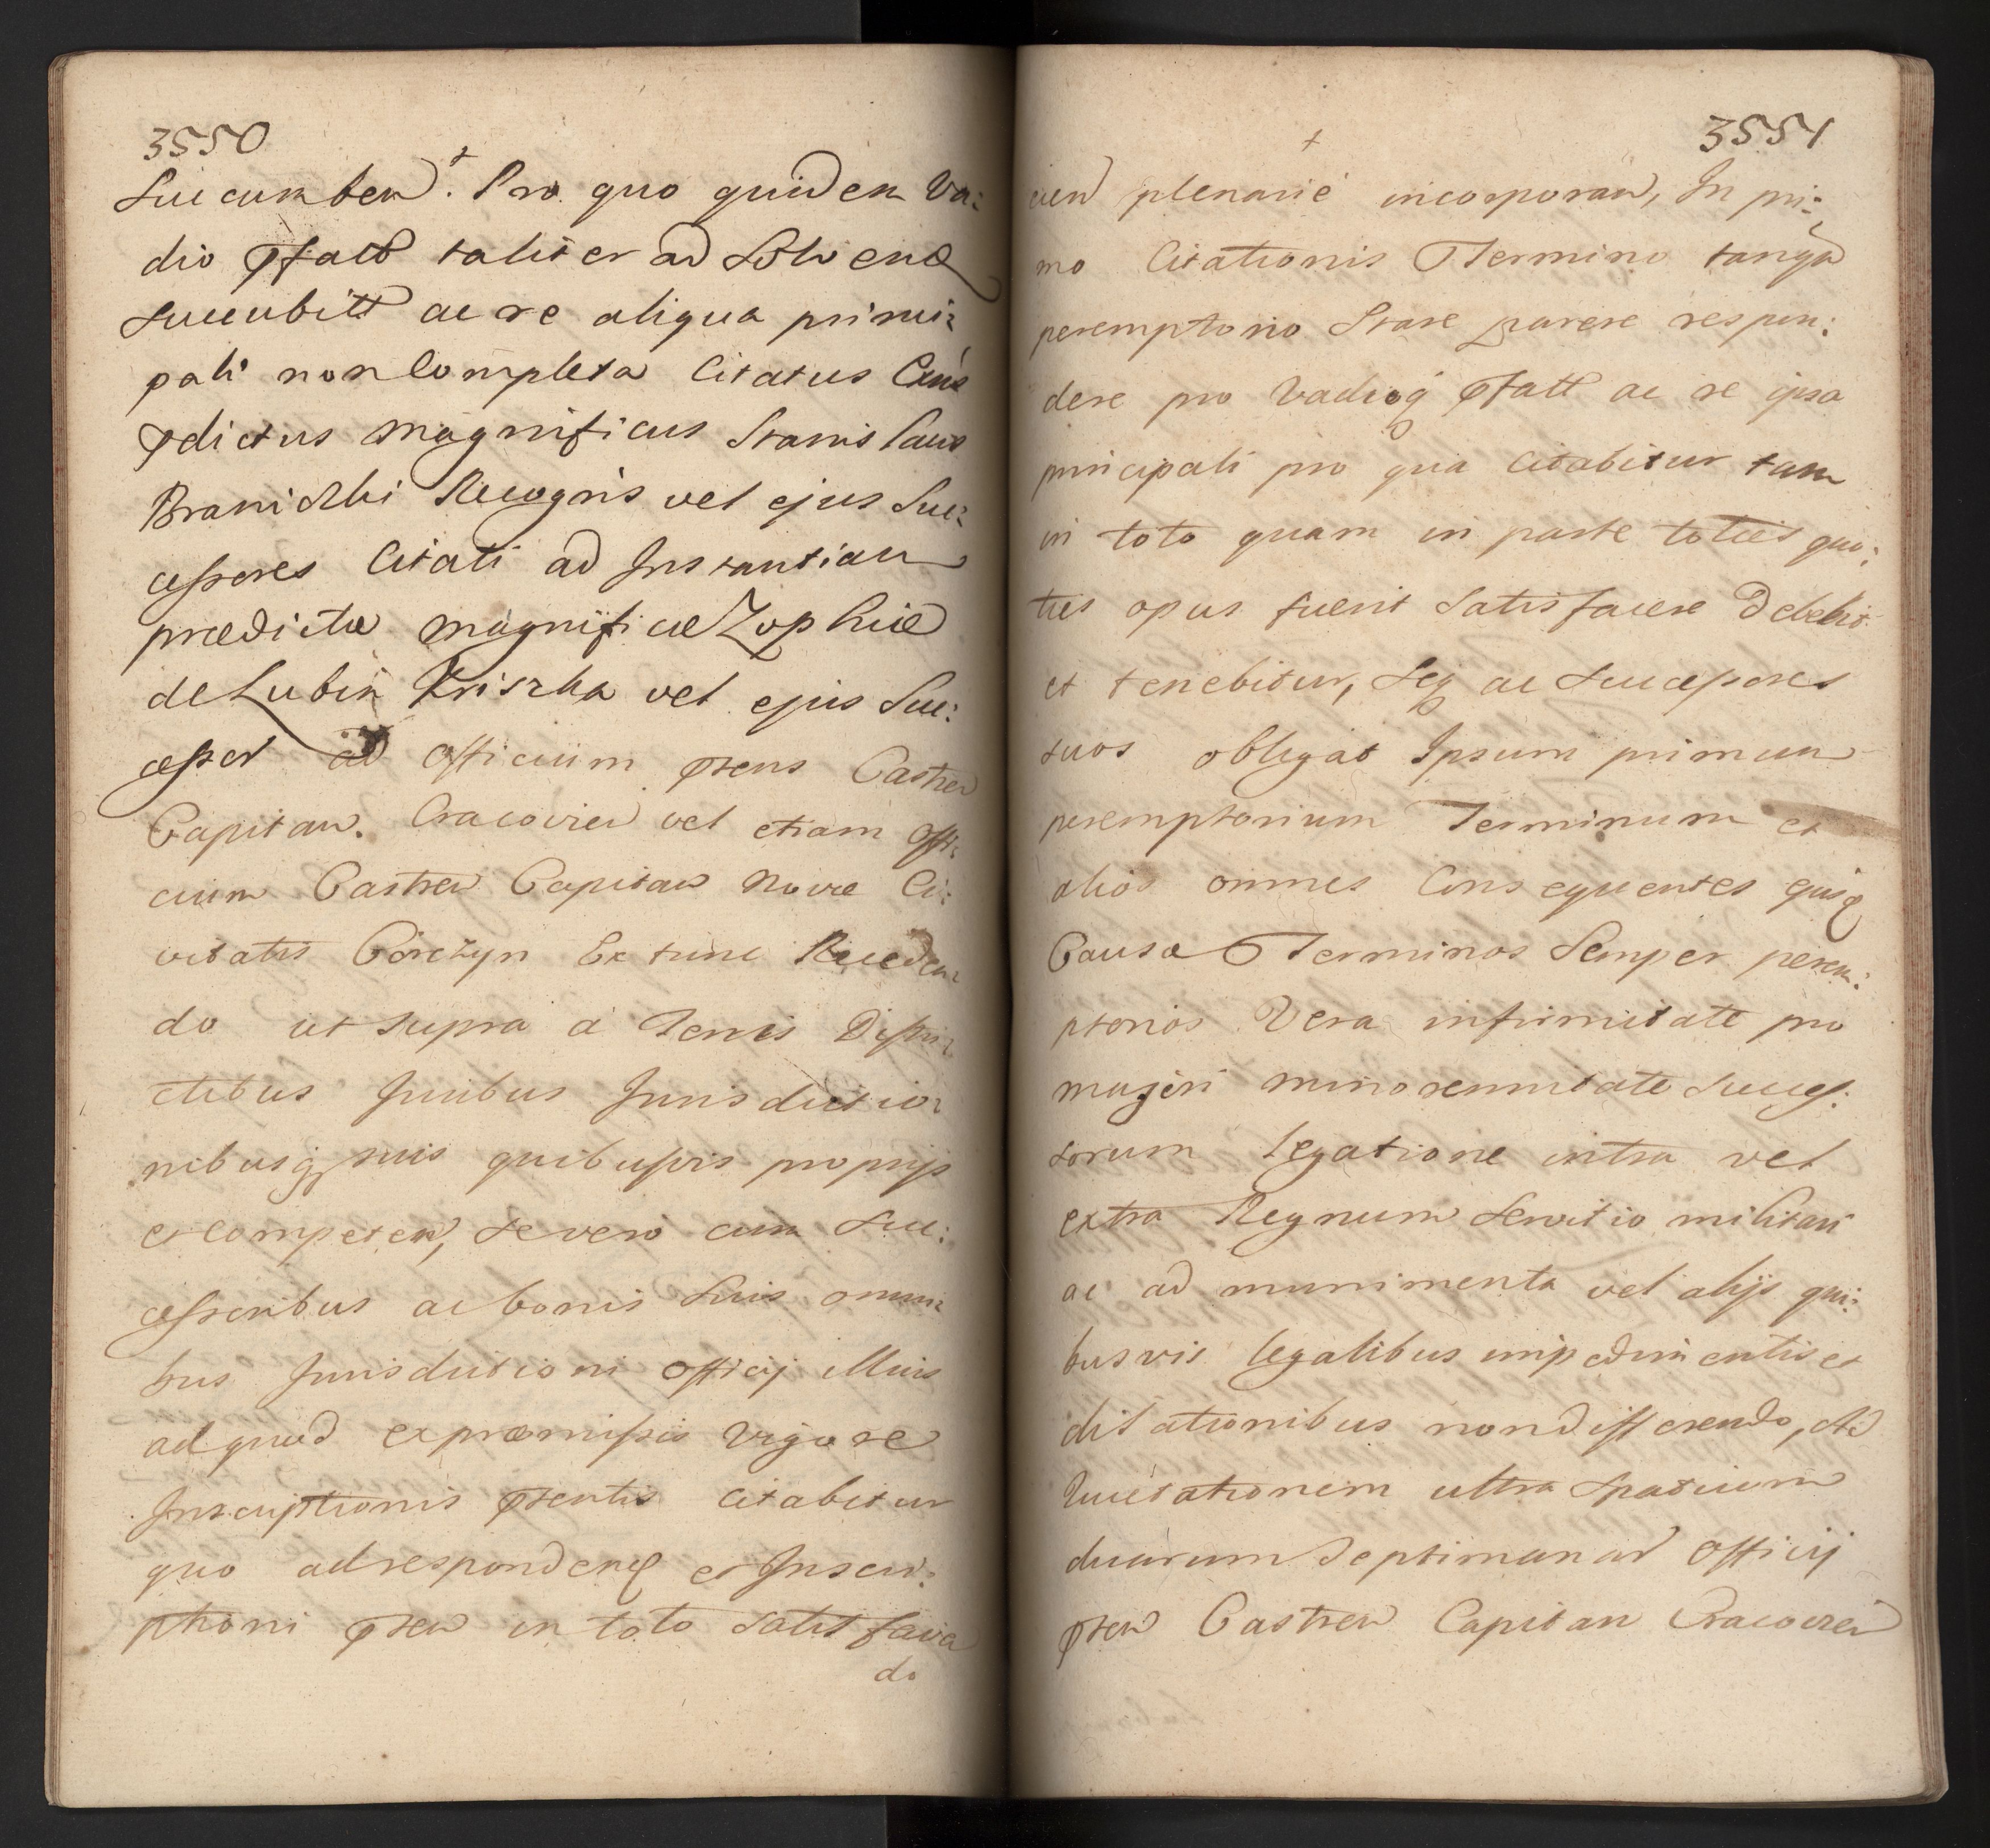 3550
Succumben. Pro quo quidem Va:
dio pfatt taliter ad Solvend
succubitt ac re aliqua princi:
pali non Completa Citatus Cins
pdictus Magnificus Stanislaus
Braniczki Recogns vel ejus Suc:
cessores Citati ad Instantiam
praedictae Magnificae Zophiae
de Lubin Kriszka vel ejus Suc:
cessor ad Officium psens Castren
Capitan. Cracovien vel etiam Offi:
cium Castren Capitan Novae Ci:
vitatis Corczyn Ex tunc Receden:
do ut supra à Terris Distri:
ctibus Juribus Jurisdictio:
nibusq suis quibusvis proprijs
et competen, se vero cum Suc:
cessoribus ac bonis Suis omni:
bus Jurisdictioni Officij illius
ad quod ex praemissis vigore
Inscriptionis psentis citabitur
quo ad respondend et Inscri:
ptioni psen in toto Satisfacien
do
3551
cien plenarie incorporan, In pri:
mo Citationis Termino tanqu
peremptorio Stare parere respon:
dere pro Vadioq pfatt ac re ipsa
principali pro qua Citabitur tam
in toto quam in parte toties quo:
ties opus fuerit Satisfacere Debebit
et tenebitur, Seq ac Successores
suos obligat Ipsum primum
peremptorium Terminum et
alios omnes Consequentes ejusq
Causae Terminos Semper perem:
ptorios Vera infirmitate pro
majori minorennitate Succes:
sorum legatione intra vel
extra Regnum Servitio militari
ac ad munimenta vel alijs qui:
busvis legalibus impedimentis et
dilationibus non differendo, Ad
Quietationem ultra spatium
duarum Septimanar Officij
psen Castren Capitan Cracovien